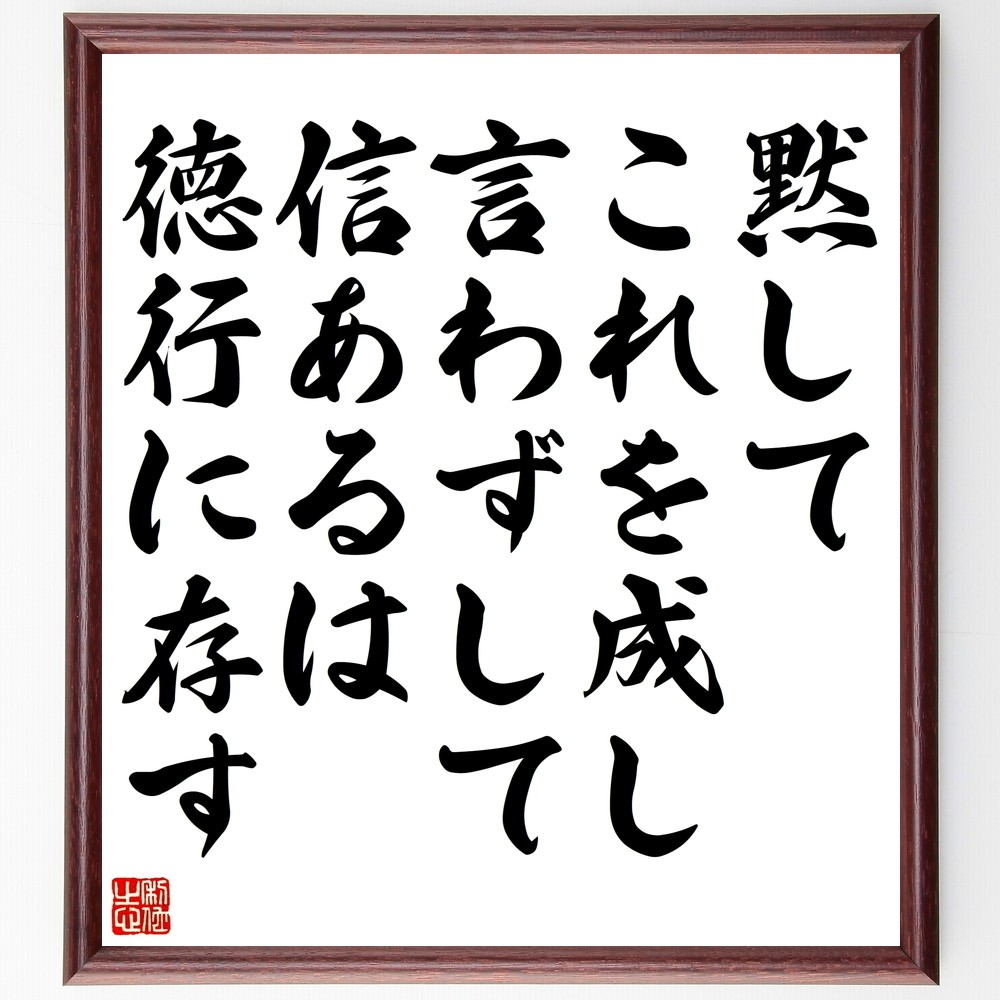 黙して
これを成し
言わずして
信あるは
徳行に存す